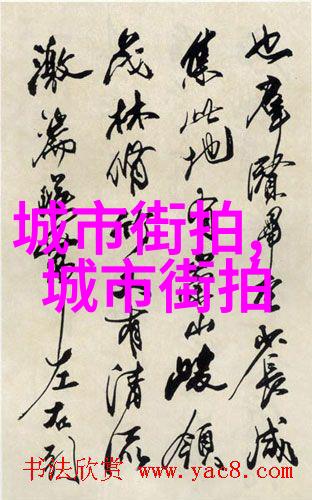 也羣賢畢至少長咸
集此地有崇山峻領
茂林脩有清流
激湍左右引
城市街拍,
城市街拍
书法欣赏 www.yac8.com